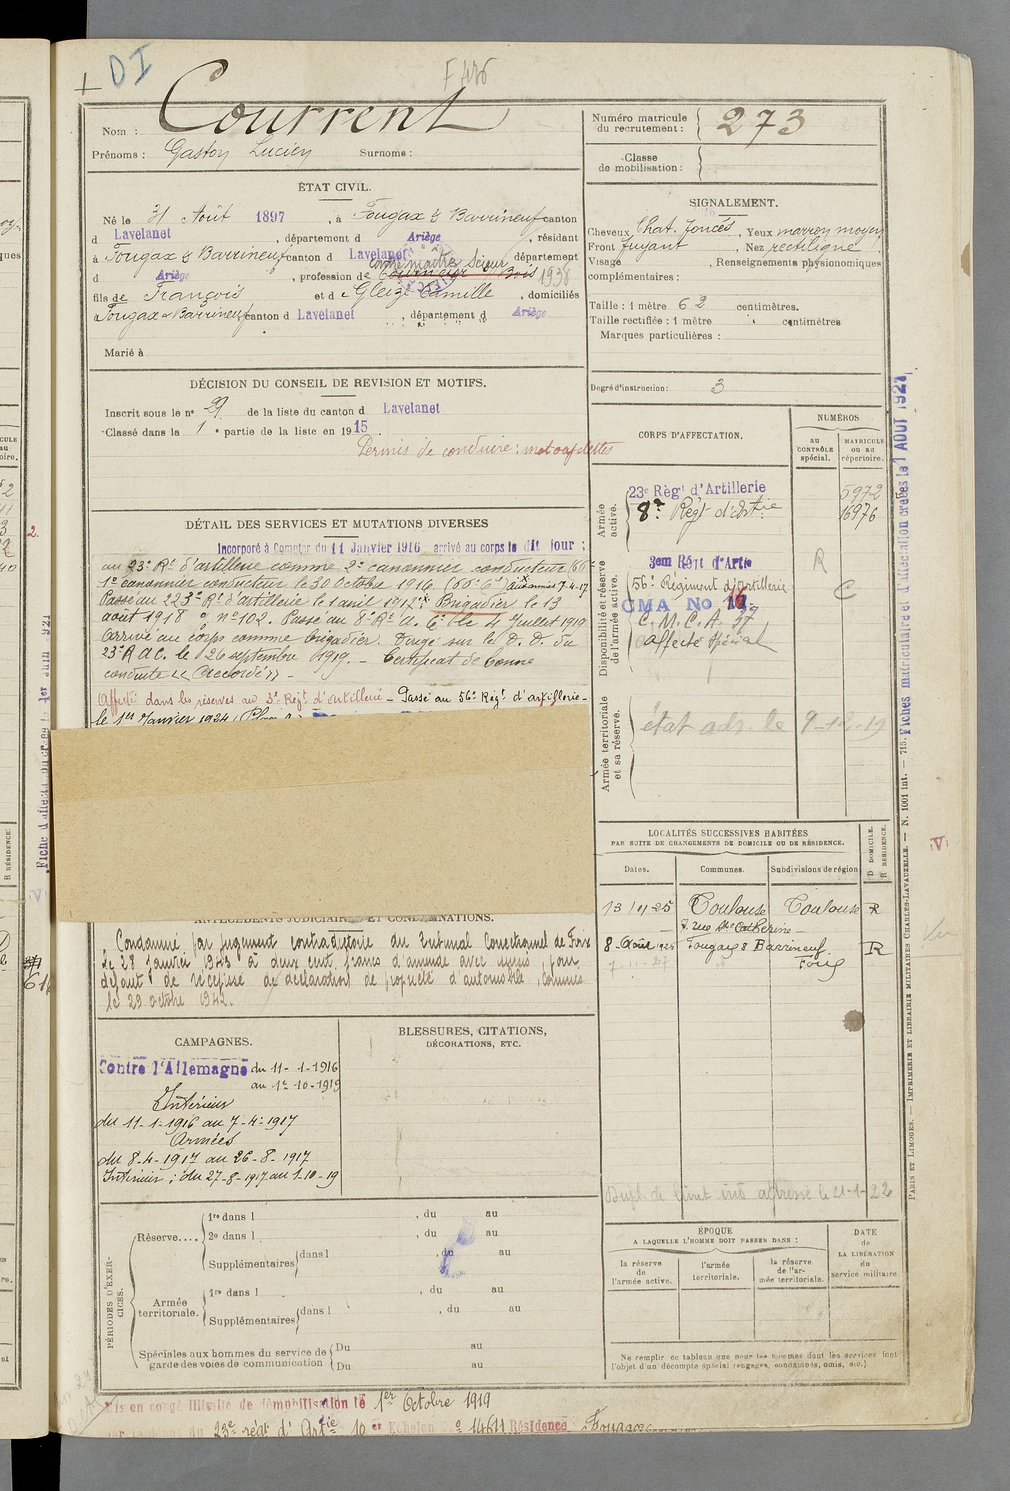 DI
F 426
Nom : Courrent
Prénoms : Gaston Lucien Surnoms :
Numéro matricule du recrutement : 273
Classe de mobilisation :
ÉTAT CIVIL.
Né le 31 Août 1897, à Fougax & Barrineuf canton
d Lavelanet, département d Ariège, résidant
à Fougax & Barrineuf canton d Lavelanet département
d Ariège, profession de Contremaître Scieur 1938
fils de François et d Gleizes Camille, domiciliés
à Fougax & Barrineuf canton d Lavelanet, département d Ariège
Marié à
SIGNALEMENT.
Cheveux Chat. foncés, Yeux marron moyen
Front fuyant, Nez rectiligne
Visage, Renseignements physionomiques
complémentaires :
Taille : 1 mètre 62 centimètres.
Taille rectifiée : 1 mètre centimètres
Marques particulières :
Degré d'instruction : 3
DÉCISION DU CONSEIL DE REVISION ET MOTIFS.
Inscrit sous le n° 29 de la liste du canton d Lavelanet
Classé dans la 1e partie de la liste en 1915.
Permis de conduire : motocyclettes
DÉTAIL DES SERVICES ET MUTATIONS DIVERSES
Incorporé à Compter du 11 Janvier 1916 arrivé au corps le dit jour ;
au 23e Rt d'artillerie comme 2e canonnier conducteur
1er canonnier conducteur le 30 Octobre 1916. Aux armées 7-4-17
Passé au 223e Rt d'artillerie le 1 avril 1917. Brigadier le 13
août 1918 n° 102. Passé au 8e Rt d'A. C. le 4 Juillet 1919
arrivé au corps comme brigadier. Dirigé sur le D. D. du
23e R A C. le 26 septembre 1919. - Certificat de bonne
conduite « Accordé » -
Affecté dans les réserves au 3e Régt d'artillerie - Passé au 56e Régt d'artillerie -
le 1er Janvier 1924
CORPS D'AFFECTATION.
NUMÉROS
au CONTRÔLE spécial.
MATRICULE ou au répertoire.
Armée active.
23e Régt d'Artillerie 5972
8e Régt d'Artie 16976
Disponibilité et réserve de l'armée active.
3em Régt d'Artie R
56e Régiment d'Artillerie C
CMA No 17
C. M. C. A. 37
affecté spécial
Armée territoriale et sa réserve.
état adr. le 9-12-19
LOCALITÉS SUCCESSIVES HABITÉES
PAR SUITE DE CHANGEMENTS DE DOMICILE OU DE RÉSIDENCE.
Dates. Communes. Subdivisions de région
D DOMICILE. R RÉSIDENCE.
Toulouse Toulouse R
7. rue Ste Catherine
8 Août 1925 Fougax & Barrineuf Foix R
ANTÉCÉDENTS JUDICIAIRES ET CONDAMNATIONS.
Condamné par jugement contradictoire du Tribunal Correctionnel de Foix
le 28 Janvier 1943 à deux cent francs d'amende avec sursis, pour
défaut de récépissé de déclaration de propriété d'automobile, commis
le 29 octobre 1942.
CAMPAGNES.
Contre l'Allemagne du 11-1-1916
au 1er-10-1919
Intérieur
du 11-1-1916 au 7-4-1917
Armées
du 8-4-1917 au 26-8-1917
Intérieur ; du 27-8-1917 au 1-10-19
BLESSURES, CITATIONS,
DÉCORATIONS, ETC.
adressé le 21-1-22
PÉRIODES D'EXERCICES.
Réserve.... 1re dans l, du au
2e dans l, du au
Supplémentaires dans l, du au
Armée territoriale. 1re dans l, du au
Supplémentaires dans l, du au
Spéciales aux hommes du service de garde des voies de communication
Du au
Du au
ÉPOQUE
A LAQUELLE L'HOMME DOIT PASSER DANS :
la réserve de l'armée active.
l'armée territoriale.
la réserve de l'armée territoriale.
DATE de LA LIBÉRATION du service militaire.
Ne remplir ce tableau que pour les hommes dont les services font
l'objet d'un décompte spécial (engagés, condamnés, omis, etc.)
Mis en congé illimité de démobilisation le 1er Octobre 1919
23e régt d'Artie 10er Echelon n° 14611 Résidence Fougax
Fiches matriculaire et d'affectation créées le 1 AOUT 1927
PARIS ET LIMOGES. — IMPRIMERIE ET LIBRAIRIE MILITAIRES CHARLES-LAVAUZELLE. — N. 1001 int. — 715.